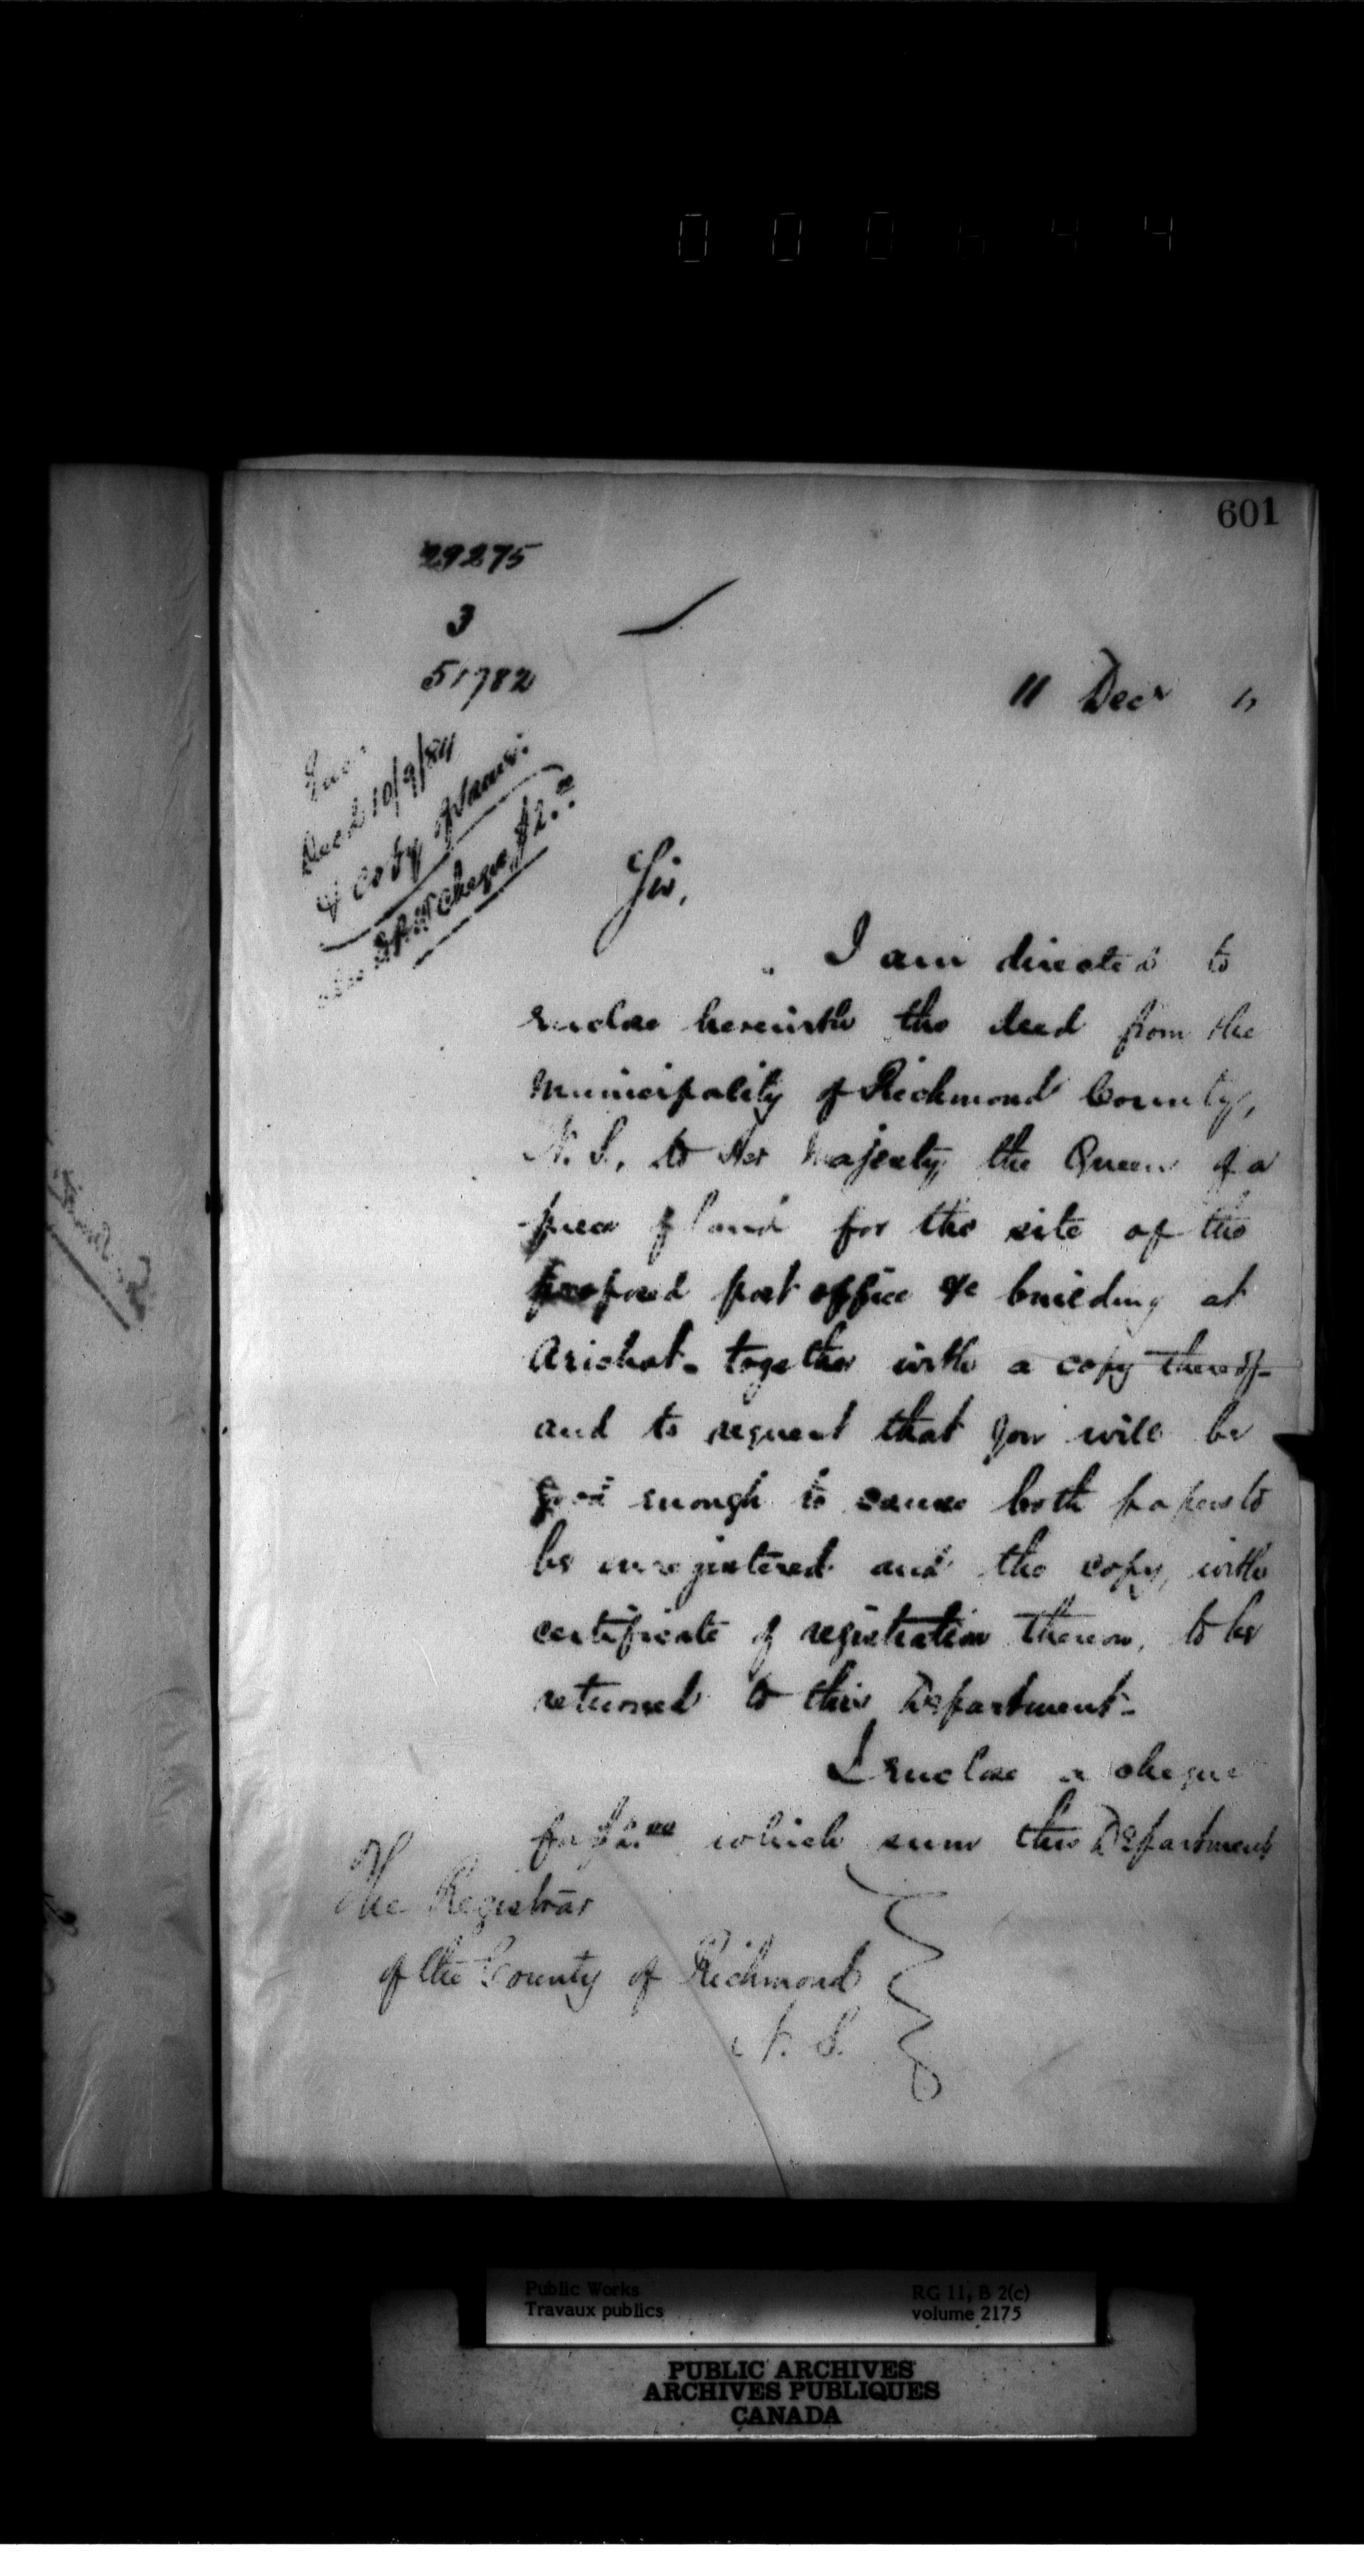 000644
601
29275
3
51782
11 Decr "
Deed 10/9/84
& copy of same.
Chegue $2.00
Sir,
I am directed to
enclose herewith the deed from the
Municipality of Richmond County,
N. S. to Her Majesty the Queen of a
piece of land for the site of the
proposed post office &c building at
Arichat - together with a copy thereof -
and to request that you will be
good enough to cause both papers to
be enregistered and the copy, with
certificate of registration thereon, to be
returned to this Department -
I enclose a cheque
for $2.00 which sum this Department
The Registrar
of the County of Richmond
N. S.
Public Works
Travaux publics
RG 11, B 2(c)
volume 2175
PUBLIC ARCHIVES
ARCHIVES PUBLIQUES
CANADA